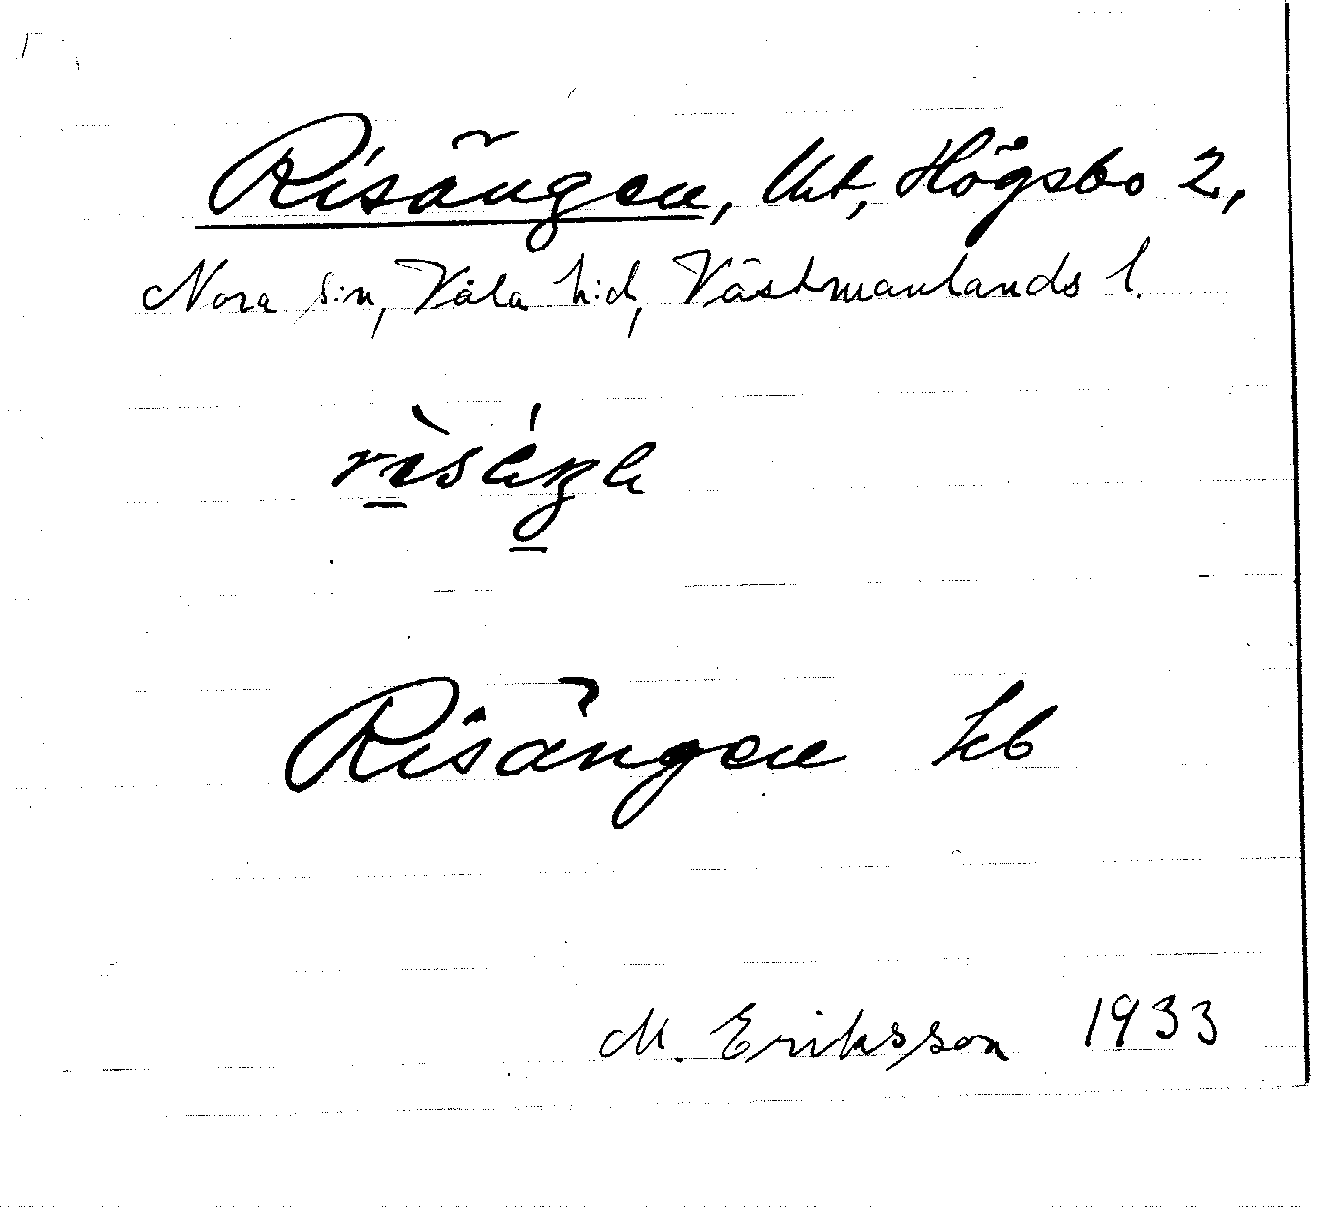 Risängen, Utt, Högsbo 2,
Nora s:n, Våla h:d, Västmanlands l.
Risängen kb
M. Eriksson 1933